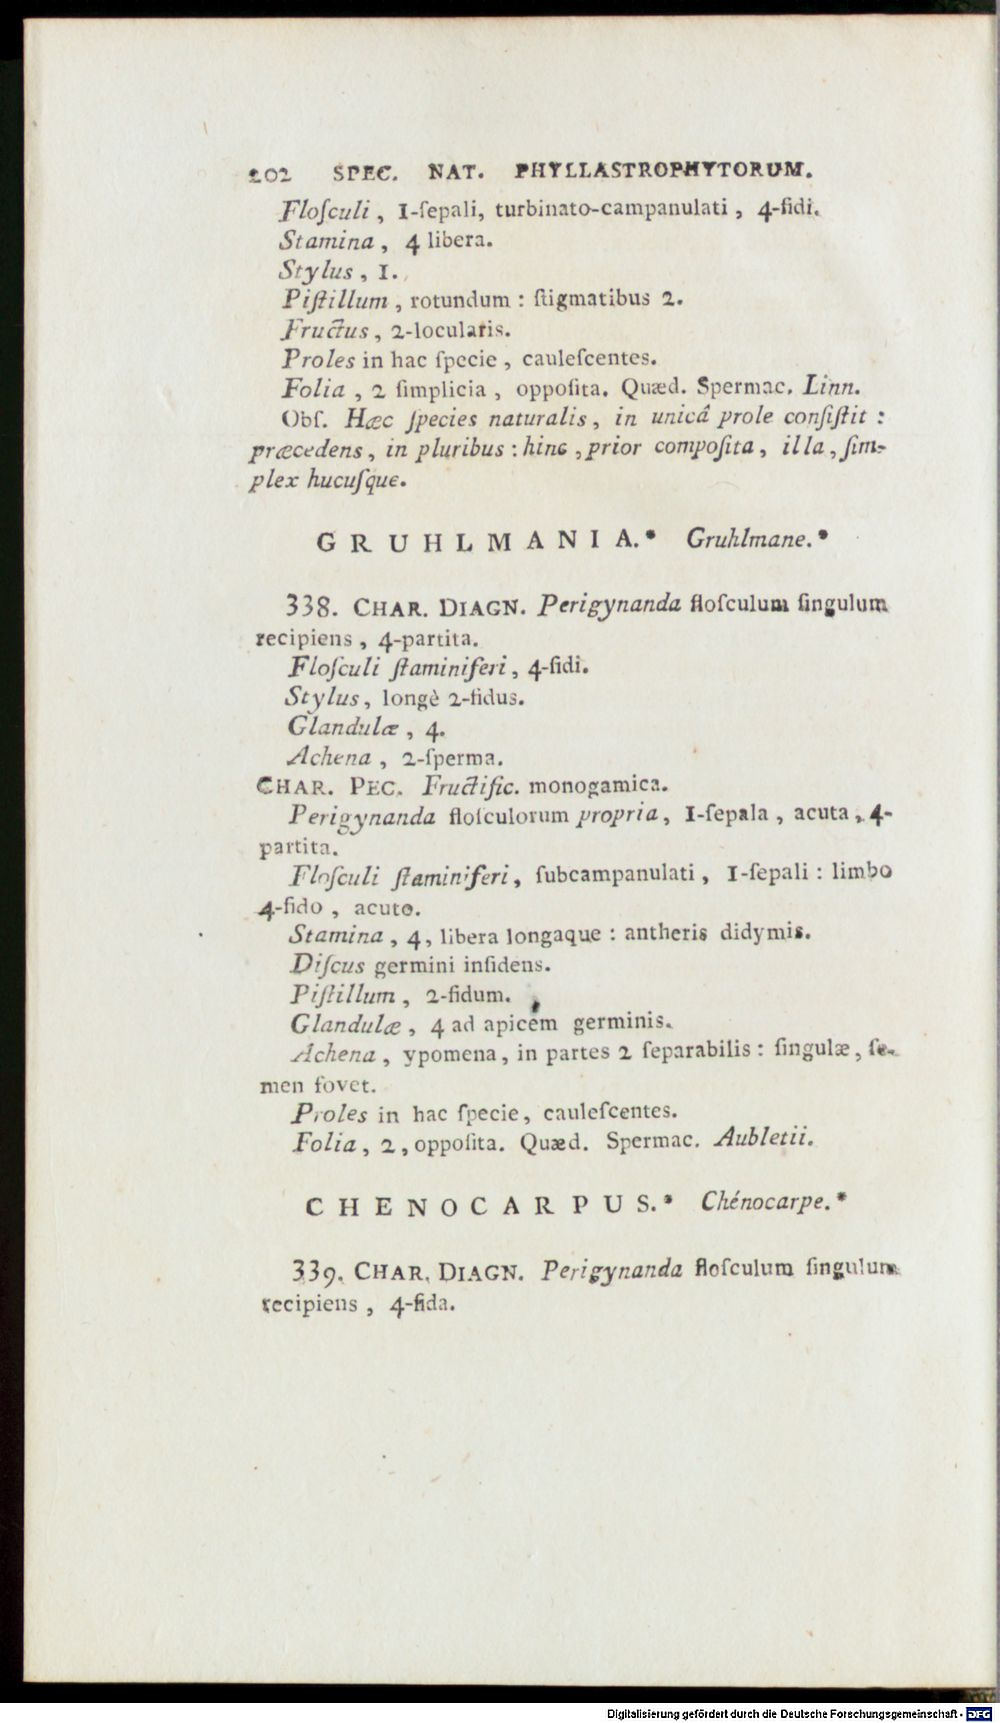 202 SPEC. NAT. PHYLLASTROPHYTORUM.
Floſculi, 1-ſepali, turbinato-campanulati, 4-fidi.
Stamina, 4 libera.
Stylus, 1.
Piſtillum, rotundum : ſtigmatibus 2.
Fructus, 2-locularis.
Proles in hac ſpecie, cauleſcentes.
Folia, 2 ſimplicia, oppoſita. Quæd. Spermac. Linn.
Obſ. Hæc ſpecies naturalis, in unicâ prole conſiſtit :
præcedens, in pluribus : hinc, prior compoſita, illa, ſim-
plex hucuſque.
GRUHLMANIA.* Gruhlmane.*
338. CHAR. DIAGN. Perigynanda floſculum ſingulum
recipiens, 4-partita.
Floſculi ſtaminiferi, 4-fidi.
Stylus, longè 2-fidus.
Glandulæ, 4.
Achena, 2-ſperma.
CHAR. PEC. Fructific. monogamica.
Perigynanda floſculorum propria, 1-ſepala, acuta, 4-
partita.
Floſculi ſtaminiferi, ſubcampanulati, 1-ſepali : limbo
4-fido, acuto.
Stamina, 4, libera longaque : antheris didymis.
Diſcus germini inſidens.
Piſtillum, 2-fidum.
Glandulæ, 4 ad apicem germinis.
Achena, ypomena, in partes 2 ſeparabilis : ſingulæ, ſe-
men fovet.
Proles in hac ſpecie, cauleſcentes.
Folia, 2, oppoſita. Quæd. Spermac. Aubletii.
CHENOCARPUS.* Chénocarpe.*
339. CHAR. DIAGN. Perigynanda floſculum ſingulum
recipiens, 4-fida.
Digitalisierung gefördert durch die Deutsche Forschungsgemeinschaft - DFG